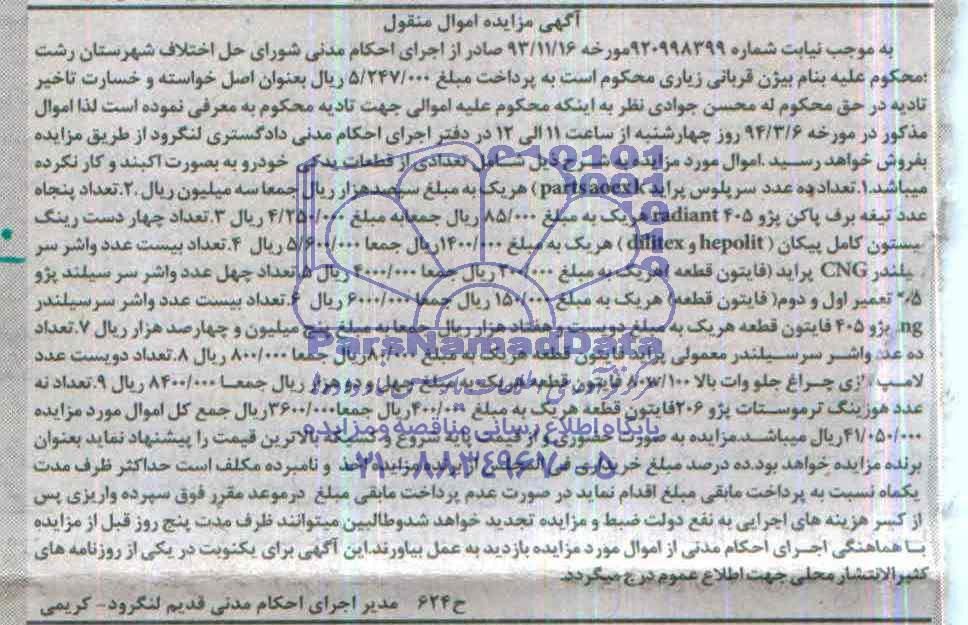 آگهی مزایده اموال منقول
به موجب نیابت شماره ۹۲۰۹۹۸۳۹۹مورخه ۹۳/۱۱/۱۶ صادر از اجرای احکام مدنی شورای حل اختلاف شهرستان رشت
محکوم علیه بنام بیژن قربانی زیاری محکوم است به پرداخت مبلغ ۵/۲۴۷/۰۰۰ ریال بعنوان اصل خواسته و خسارت تاخیر
تادیه در حق محکوم له محسن جوادی نظر به اینکه محکوم علیه اموالی جهت تادیه محکوم به معرفی نموده است لذا اموال
مذکور در مورخه ۹۴/۳/۶ روز چهارشنبه از ساعت ۱۱ الی ۱۲ در دفتر اجرای احکام مدنی دادگستری لنگرود از طریق مزایده
بفروش خواهد رسید .اموال مورد مزایده به شرح ذیل شامل تعدادی از قطعات یدکی خودرو به بصورت آکبند و کار نکرده
میباشد.۱.تعداد ده عدد سرپلوس پراید (partsaoexk هریک به مبلغ سیصدهزار ریال جمعا سه میلیون ریال .۲.تعداد پنجاه
عدد تیغه برف پاکن پژو ۴۰۵ radiant هریک به مبلغ ۸۵/۰۰۰ ریال جمعابه مبلغ ۴/۲۵۰/۰۰۰ ریال ۳.تعداد چهار دست رینگ
پیستون کامل پیکان ( hepolit و dilitex ) هریک به مبلغ ۱۴۰۰/۰۰۰ریال جمعا ۵/۶۰۰/۰۰۰ ریال ۴.تعداد بیست عدد واشر سر
یلندر CNG پراید (فایتون قطعه )هریک به مبلغ ۲۰۰/۰۰۰ ریال جمعا ۴۰۰۰/۰۰۰ ریال ۵.تعداد چهل عدد واشر سر سیلند پژو
تعمیر اول و دوم( فایتون قطعه) هریک به مبلغ ۱۵۰/۰۰۰ ریال جمعا ۶۰۰۰/۰۰۰ ریال ۶.تعداد بیست عدد واشر سرسیلندر
ng پژو ۴۰۵ فایتون قطعه هریک به مبلغ دویست و هفتاد هزار ریال جمعابه مبلغ پنج میلیون و چهارصد هزار ریال ۷.تعداد
ده عدد واشر سرسیلندر معمولی پراید فایتون قطعه هریک به مبلغ ۸۰/۰۰۰ریال جمعا ۸۰۰/۰۰۰ ریال ۸.تعداد دویست عدد
لامپ گازی چراغ جلو وات بالا فایتون قطعه هریک به مبلغ چهل و دو هزار ریال جمعا ۸۴۰۰/۰۰۰ ریال ۹.تعداد نه
عدد هوزینگ ترموستات پژو ۲۰۶فایتون قطعه هریک به مبلغ ۴۰۰/۰۰۰ ریال جمعا۳۶۰۰/۰۰۰ریال جمع کل اموال مورد مزایده
۴۱/۰۵۰/۰۰۰ریال میباشد.مزایده به صورت حضوری و از قیمت پایه شروع و کسیکه بالاترین قیمت را پیشنهاد نماید بعنوان
برنده مزایده خواهد بود.ده درصد مبلغ خریداری فی المجلس از برنده مزایده اخذ و نامبرده مکلف است حداکثر ظرف مدت
یکماه نسبت به پرداخت مابقی مبلغ اقدام نماید در صورت عدم پرداخت مابقی مبلغ درموعد مقرر فوق سپرده واریزی پس
از کسر هزینه های اجرایی به نفع دولت ضبط و مزایده تجدید خواهد شدوطالبین میتوانند ظرف مدت پنج روز قبل از مزایده
با هماهنگی اجرای احکام مدنی از اموال مورد مزایده بازدید به عمل بیاورند.این آگهی برای یکنوبت در یکی از روزنامه های
کثیرالانتشار محلی جهت اطلاع عموم درج میگردد.
ح۶۲۴ مدیر اجرای احکام مدنی قدیم لنگرود- کریمی
ParsNamadData
پایگاه اطلاع رسانی مناقصه و مزایده
۰۲۱-۸۸۳۴۹۶۷۰-۵